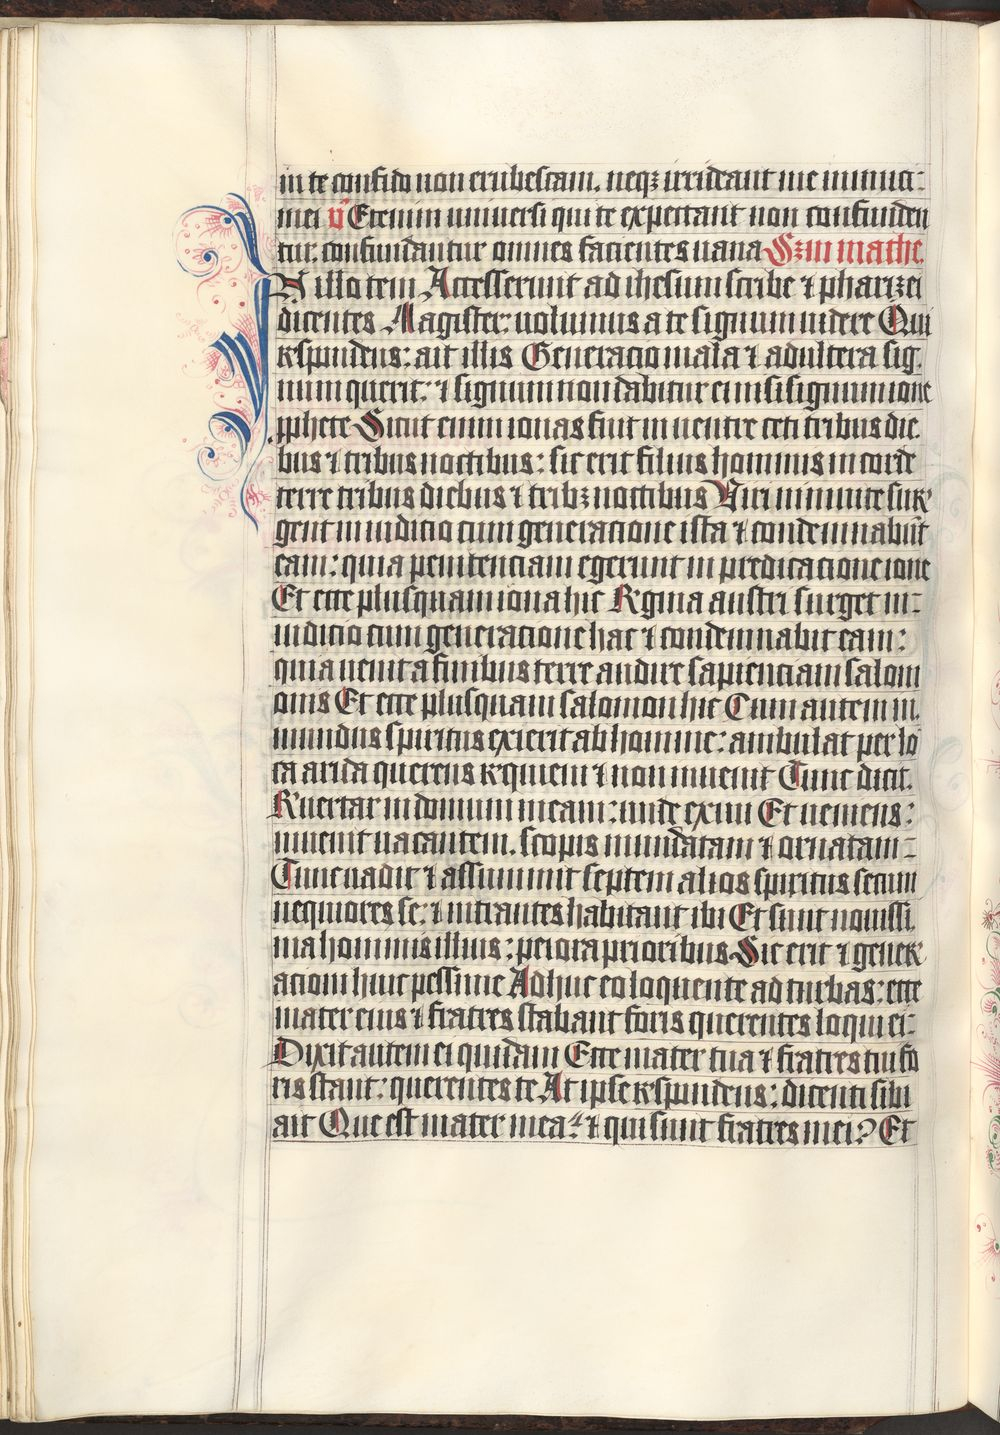 in te confido non erubescam. neqz irrideant me inimici:
mei v̄ Etenim universi qui te expectant non confunden
tur. confundantur omnes facientes uana Sz̄m mathe.
IN illo tem Accesserunt ad ihesum scribe ⁊ pharizei
dicentes Magister: uolumus a te signum uidere Qui
respondens: ait illis Generacio mala ⁊ adultera sig.
num querit: ⁊ signum non dabitur ei nisi signum ione
pphete Sicut enim ionas fuit in uentre ceti tribus die.
bus ⁊ tribus noctibus: sic erit filius hominis in corde
terre tribus diebus ⁊ tribz noctibus Viri niniuite sur
gent in iudicio cum generacione ista ⁊ condemnabūt
eam: quia penitenciam egerunt in predicacione ione
Et ecce plusquam iona hic Regina austri surget in:
iudicio cum generacione hac ⁊ condemnabit eam:
quia uenit a finibus terre audire sapienciam salom
onis Et ecce plusquam salomon hic Cum autem in.
mundus spiritus exierit ab homine: ambulat per lo
ca arida querens requiem ⁊ non inuenit Tunc dicit.
Reuertar in domum meam: unde exiui Et ueniens:
inuenit uacantem. scopis mundatam ⁊ ornatam:
Tunc uadit ⁊ assummit septem alios spiritus secum
nequiores se: ⁊ intrantes habitant ibi Et sunt nouissi.
ma hominis illius: peiora prioribus Sic erit ⁊ gener
acioni huic pessime Adhuc eo loquente ad turbas: ecce
mater eius ⁊ fratres stabant foris querentes loqui ei:
Dixit autem ei quidam Ecce mater tua ⁊ fratres tui fo
ris stant: querentes te At ipse respondens: dicenti sibi
ait Que est mater mea? ⁊ qui sunt fratres mei? Et